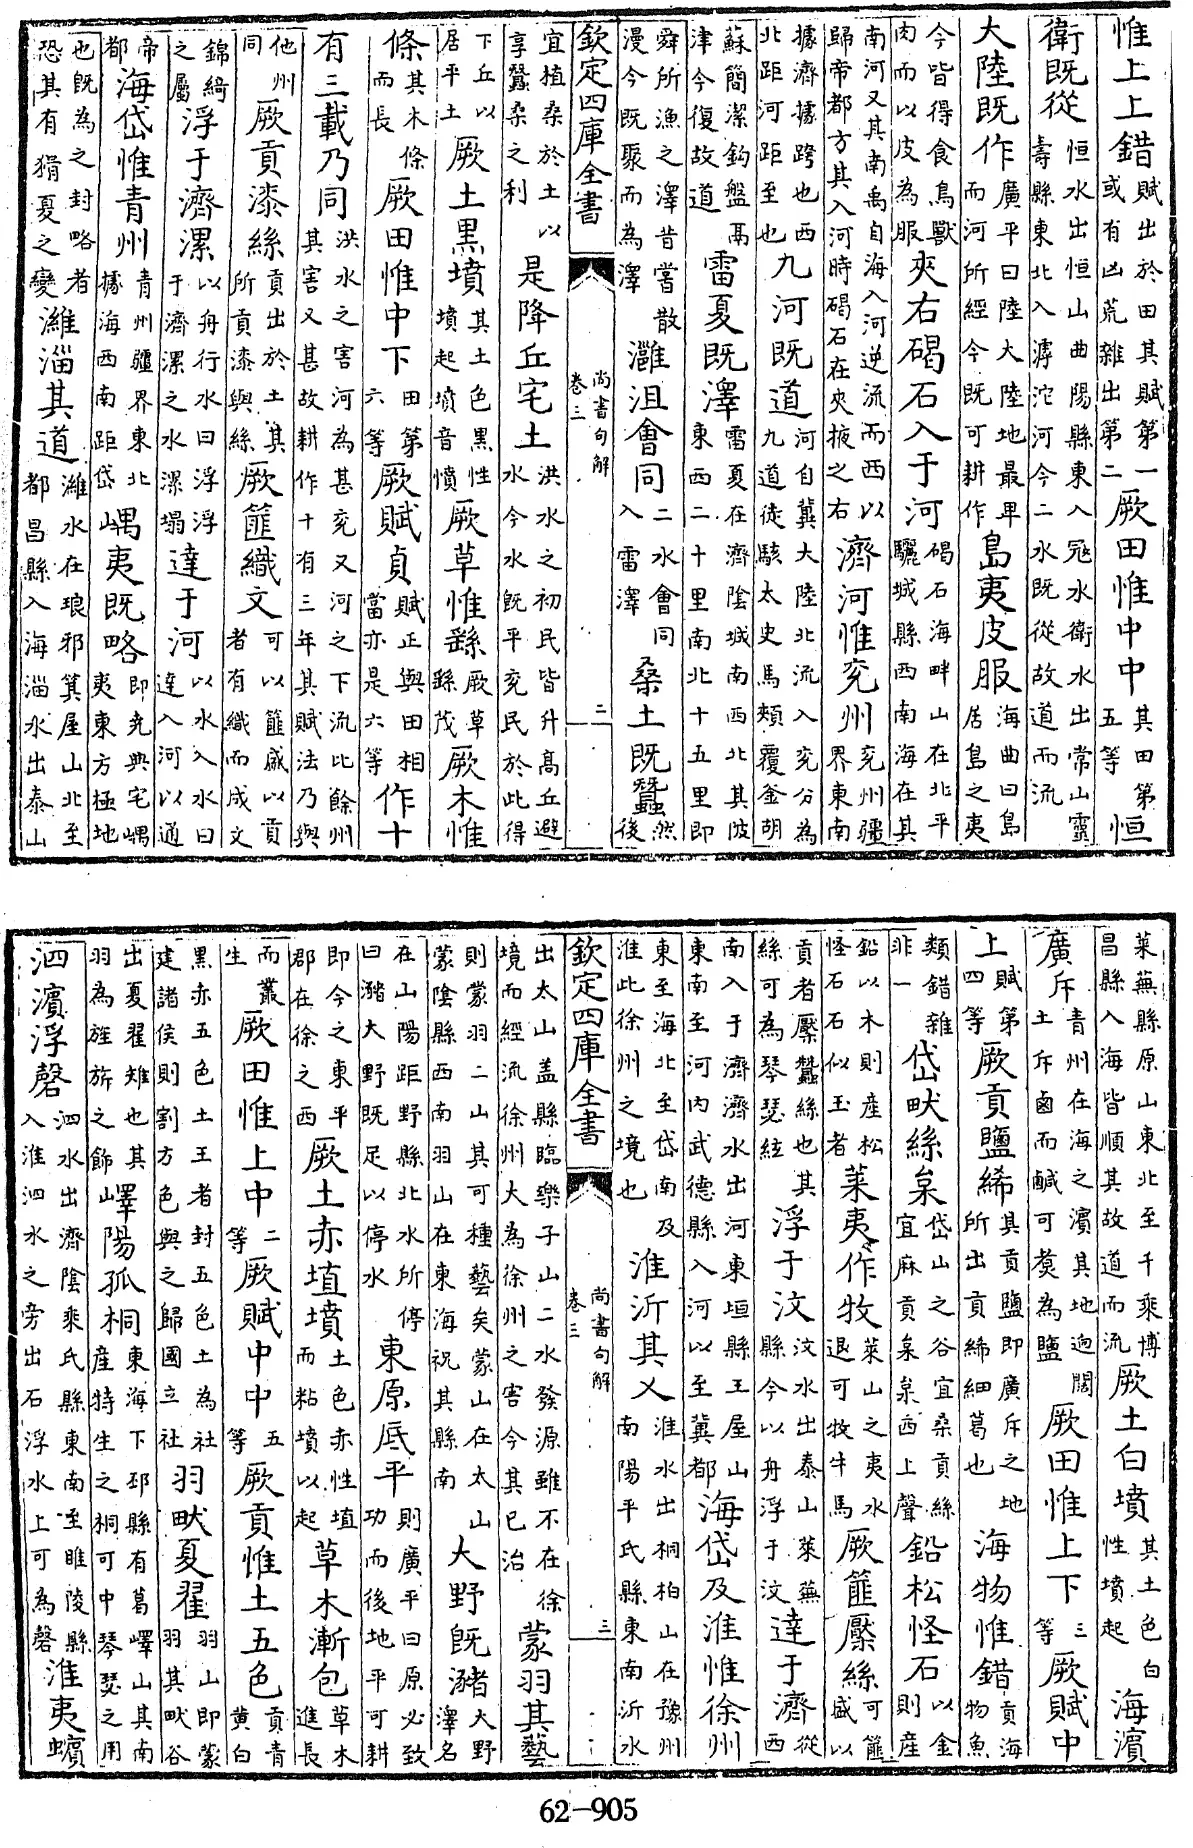 惟上上錯賦出於田其賦第一或有凶荒雜出第二厥田惟中中其田第五等恒
衛既從恒水出恒山曲陽縣東入滱水衛水出常山靈壽縣東北入滹沱河今二水既從故道而流
大陸既作廣平曰陸大陸地最卑而河所經今既可耕作島夷皮服海曲曰島居島之夷
今皆得食鳥獸肉而以皮為服夾右碣石入于河碣石海畔山在北平驪城縣西南海在其
南河又其南禹自海入河逆流而西以歸帝都方其入河時碣石在夾掖之右濟河惟兖州兖州疆界東南
據濟據跨也西北距河距至也九河既道河自冀大陸北流入兖分為九道徒駭太史馬頰覆釜胡
蘇簡潔鈎盤鬲津今復故道雷夏既澤雷夏在濟陰城南西北其陂東西二十里南北十五里即
舜所漁之澤昔嘗散漫今既聚而為澤灉沮會同二水會同入雷澤桑土既蠶然後
欽定四庫全書 尚書句解 卷三 二
宜植桑於土以享蠶桑之利是降丘宅土洪水之初民皆升高丘避水今水既平兖民於此得
下丘以居平土厥土黒墳其土色黑性墳起墳音憤厥草惟繇厥草繇茂厥木惟
條其木條而長厥田惟中下田第六等厥賦貞賦正與田相當亦是六等作十
有三載乃同洪水之害河為甚兖又河之下流比餘州其害又甚故耕作十有三年其賦法乃與
他州同厥貢漆絲貢出於土其所貢漆與絲厥篚織文可以篚盛以貢者有織而成文
錦綺之屬浮于濟漯以舟行水曰浮浮于濟漯之水漯塌達于河以水入水曰達入河以通
帝都海岱惟青州青州疆界東北據海西南距岱嵎夷既略即堯典宅嵎夷東方極地
也既為之封略者恐其有猾夏之變濰淄其道濰水在琅邪箕屋山北至都昌縣入海淄水出泰山
萊蕪縣原山東北至千乘博昌縣入海皆順其故道而流厥土白墳其土色白性墳起海濱
廣斥青州在海之濱其地逈闊土斥鹵而鹹可煑為鹽厥田惟上下三等厥賦中
上賦第四等厥貢鹽絺其貢鹽即廣斥之地所出貢絺細葛也海物惟錯貢海物魚
類錯雜非一岱畎絲枲岱山之谷宜桑貢絲宜麻貢枲枲西上聲鉛松怪石以金則産
鉛以木則産松怪石石似玉者萊夷作牧萊山之夷水退可牧牛馬厥篚檿絲可篚盛以
貢者檿蠶絲也其絲可為琴瑟絃浮于汶汶水出泰山萊蕪縣今以舟浮于汶達于濟從西
南入于濟濟水出河東垣縣王屋山東南至河内武德縣入河以至冀都海岱及淮惟徐州
東至海北至岱南及淮此徐州之境也淮沂其乂淮水出桐柏山在豫州南陽平氏縣東南沂水
欽定四庫全書 尚書句解 卷三 三
出太山盖縣臨樂子山二水發源雖不在徐境而經流徐州大為徐州之害今其已治蒙羽其藝
則蒙羽二山其可種藝矣蒙山在太山蒙陰縣西南羽山在東海祝其縣南大野既豬大野澤名
在山陽距野縣北水所停曰瀦大野既足以停水東原底平則廣平曰原必致功而後地平可耕
即今之東平郡在徐之西厥土赤埴墳土色赤性埴而粘墳以起草木漸包草木進長
而叢生厥田惟上中二等厥賦中中五等厥貢惟土五色貢青黄白
黑赤五色土王者封五色土為社建諸侯則割方色與之歸國立社羽畎夏翟羽山即蒙羽其畎谷
出夏翟雉也其羽為旌旂之飾嶧陽孤桐東海下邳縣有葛嶧山其南産特生之桐可中琴瑟之用
泗濱浮磬泗水出濟陰乘氏縣東南至睢陵縣入淮泗水之旁出石浮水上可為磬淮夷蠙
62-905